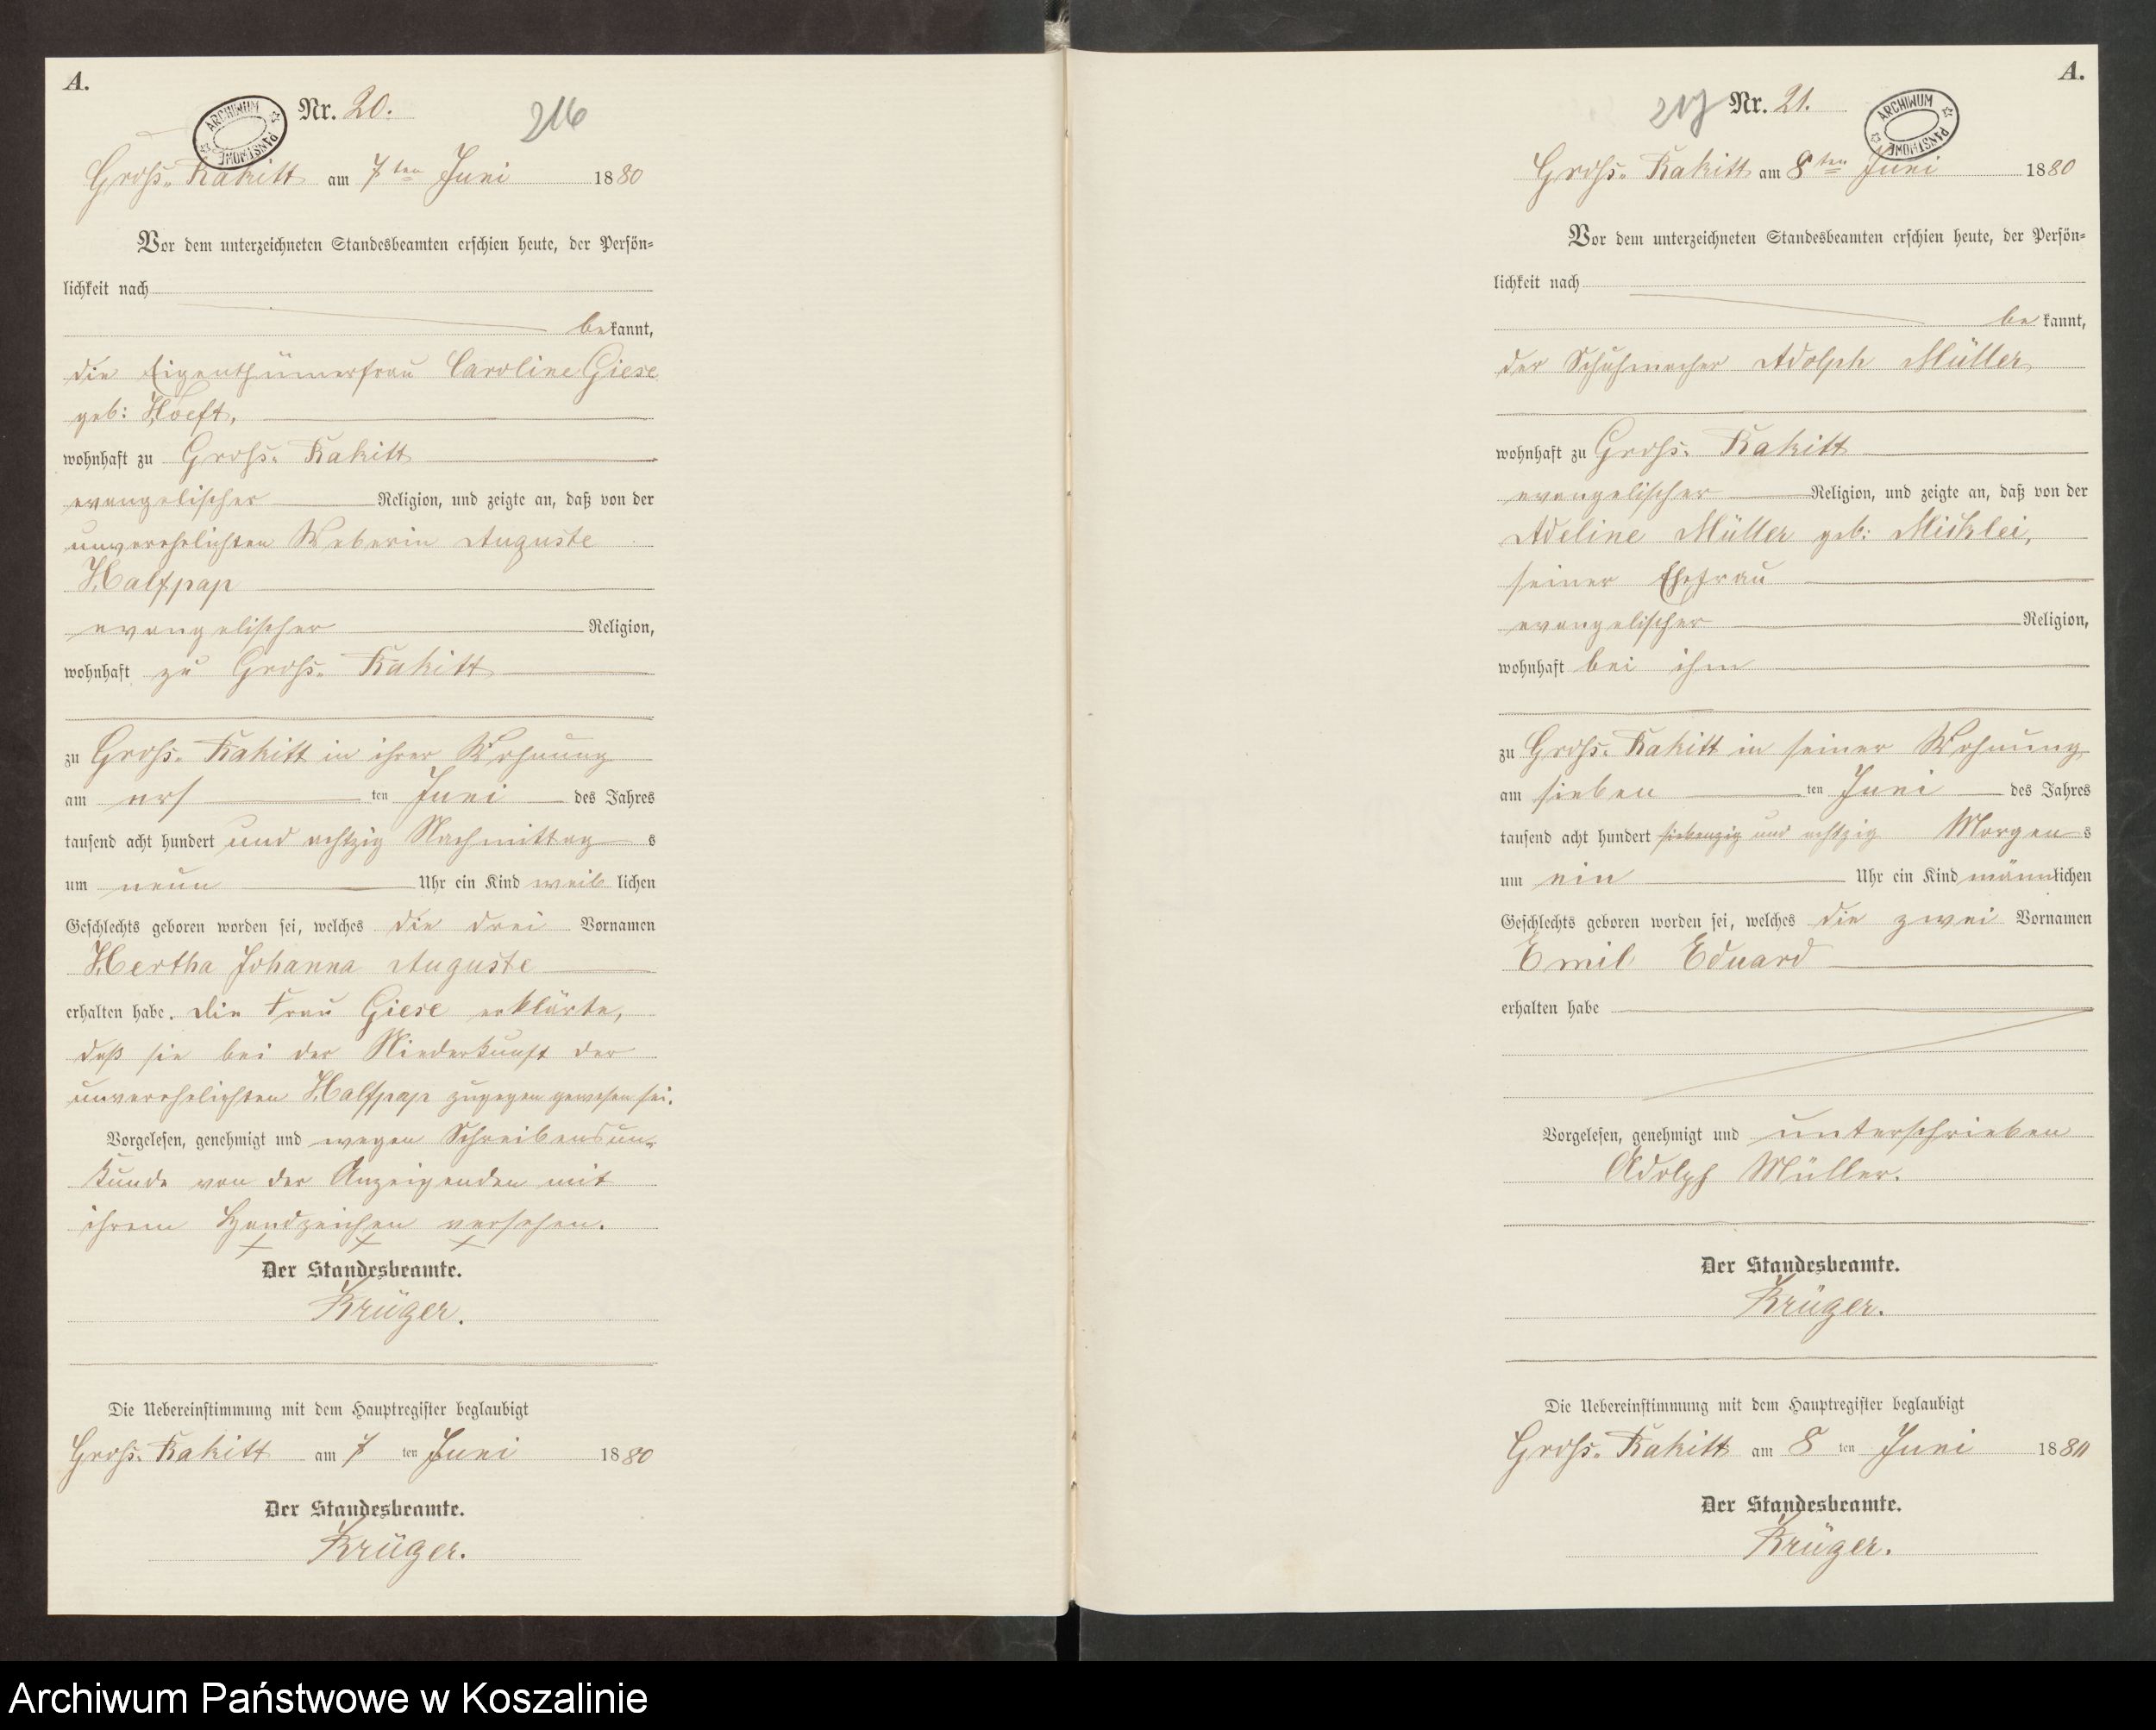 A.
ARCHIWUM PAŃSTWOWE
Nr. 20.
216
Groß-Rakitt am 7ten Juni 1880
Vor dem unterzeichneten Standesbeamten erschien heute, der Persön=
lichkeit nach
bekannt,
die Eigenthümerfrau Caroline Giese
geb: Hoeft,
wohnhaft zu Groß-Rakitt
evangelischer Religion, und zeigte an, daß von der
unverehelichten Weberin Auguste
Halfpap
evangelischer Religion,
wohnhaft zu Groß-Rakitt
zu Groß-Rakitt in ihrer Wohnung
am ers ten Juni des Jahres
tausend acht hundert und achtzig Nachmittag s
um neun Uhr ein Kind weib lichen
Geschlechts geboren worden sei, welches die drei Vornamen
Hertha Johanna Auguste
erhalten habe. Die Frau Giese erklärte,
daß sie bei der Niederkunft der
unverehelichten Halfpap zugegen gewesen sei.
Vorgelesen, genehmigt und wegen Schreibensun-
kunde von der Anzeigenden mit
ihrem Handzeichen versehen.
+ + +
Der Standesbeamte.
Krüger.
Die Uebereinstimmung mit dem Hauptregister beglaubigt
Groß-Rakitt am 7 ten Juni 1880
Der Standesbeamte.
Krüger.
A.
217
Nr. 21.
ARCHIWUM PAŃSTWOWE
Groß-Rakitt am 8ten Juni 1880
Vor dem unterzeichneten Standesbeamten erschien heute, der Persön=
lichkeit nach
be kannt,
der Schuhmacher Adolph Müller
wohnhaft zu Groß-Rakitt
evangelischer Religion, und zeigte an, daß von der
Adeline Müller geb: Micklei,
seiner Ehefrau
evangelischer Religion,
wohnhaft bei ihm
zu Groß-Rakitt in seiner Wohnung
am sieben ten Juni des Jahres
tausend acht hundert siebenzig und achtzig Morgen s
um ein Uhr ein Kind männlichen
Geschlechts geboren worden sei, welches die zwei Vornamen
Emil Eduard
erhalten habe
Vorgelesen, genehmigt und unterschrieben
Adolph Müller.
Der Standesbeamte.
Krüger.
Die Uebereinstimmung mit dem Hauptregister beglaubigt
Groß-Rakitt am 8 ten Juni 1880
Der Standesbeamte.
Krüger.
Archiwum Państwowe w Koszalinie